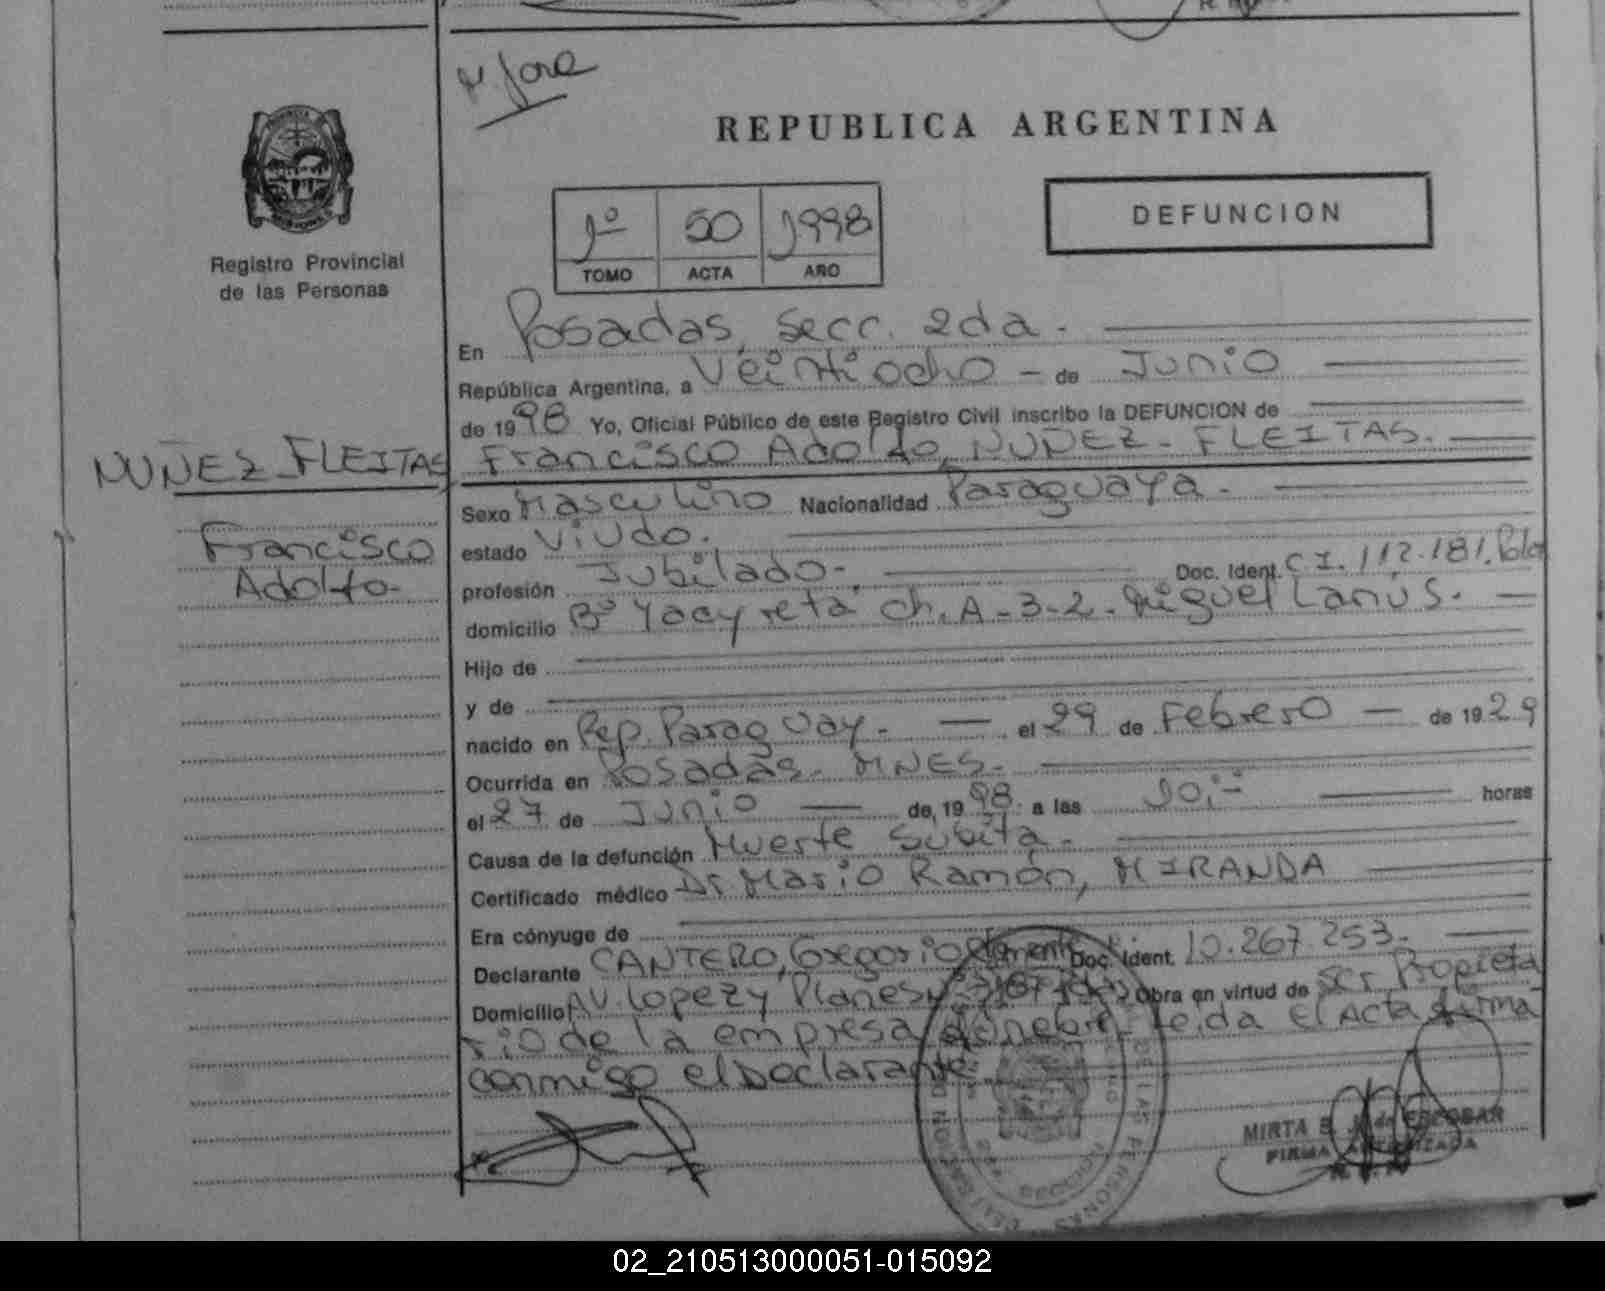 M. Jose
REPUBLICA ARGENTINA
1º 50 1998
TOMO ACTA AÑO
DEFUNCION
Registro Provincial
de las Personas
En Posadas, secc. 2da.
República Argentina, a Veintiocho - de Junio
de 1998 Yo, Oficial Público de este Registro Civil inscribo la DEFUNCION de
Francisco Adolfo, NUÑEZ - FLEITAS.
NUÑEZ FLEITAS
Francisco
Adolfo
Sexo Masculino Nacionalidad Paraguaya.
estado Viudo.
profesión Jubilado. Doc. Ident. C I. 112.181.
domicilio Bº Yacyreta Ch. A-3-2. Miguel Lanús.
Hijo de
y de
nacido en Rep. Paraguay. el 29 de Febrero de 1929
Ocurrida en Posadas. MNES.
el 27 de Junio de 1998 a las 10:- horas
Causa de la defunción Muerte Subita.
Certificado médico Dr. Mario Ramón, MIRANDA
Era cónyuge de
Declarante CANTERO, Gregorio Doc. Ident. 10.267.253.
Domicilio AV. Lopez y Planes Obra en virtud de ser Propieta
rio de la empresa leida el Acta firma
conmigo el Declarante
MIRTA B. J. de ESCOBAR
FIRMA AUTORIZADA
02_210513000051-015092